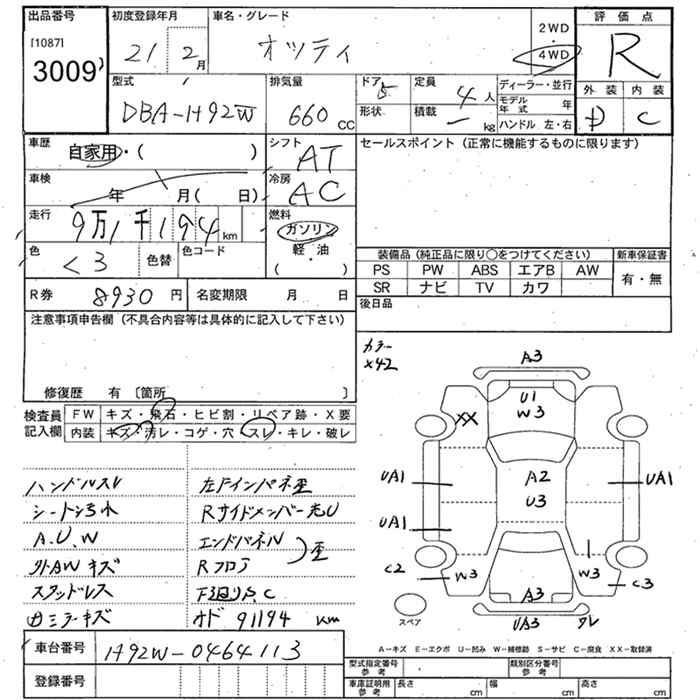 出品番号 初度登録年月 車名・グレード 2WD・4WD 評価点
[1087]
3009 21年2月 オッティ R
型式 排気量 ドア 定員 ディーラー・並行 外装 内装
DBA-H92W 660cc 5 4人 モデル年式 年 D C
形状 積載 - kg ハンドル 左・右
車歴 自家用・( ) シフト AT セールスポイント(正常に機能するものに限ります)
車検 年 月( 日) 冷房 AC
走行 9万1千194km 燃料 ガソリン・軽・油 ( )
色 クロ 色替 色コード
装備品(純正品に限り○をつけてください) 新車保証書
PS PW ABS エアB AW 有・無
SR ナビ TV カワ
R券 8930円 名変期限 月 日 後日品
注意事項申告欄(不具合内容等は具体的に記入して下さい)
修復歴 有〔箇所 〕
検査員記入欄 FW キズ・飛石・ヒビ割・リペア跡・X要
内装 キズ・汚レ・コゲ・穴・スレ・キレ・破レ
ハンドルスレ 左Fインパネ歪
R サイドメンバー
A.U.W エンドパネル
外AWキズ Rフロア 歪
スタッドレス 下廻りS,C
ミラーキズ オド 91194km
車台番号 H92W-0464113
登録番号
カラー
X42
A3
U1
W3
XX
A2
U3
UA1
UA1
UA1
C2
W3
W3
C3
A3
UA3
スペア
A-キズ E-エクボ U-凹み W-補修跡 S-サビ C-腐食 XX-取替済
型式指定番号 参考 類別区分番号 参考
車庫証明用 参考 長さ cm 幅 cm 高さ cm